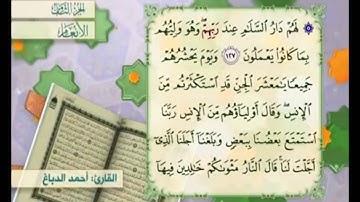 الجزء الثامن
الأنعام
لَهُمْ دَارُ السَّلَامِ عِندَ رَبِّهِمْ وَهُوَ وَلِيُّهُم
بِمَا كَانُوا يَعْمَلُونَ ١٢٧ وَيَوْمَ يَحْشُرُهُمْ
جَمِيعًا يَامَعْشَرَ الْجِنِّ قَدِ اسْتَكْثَرْتُم مِّنَ
الْإِنسِ وَقَالَ أَوْلِيَاؤُهُم مِّنَ الْإِنسِ رَبَّنَا
اسْتَمْتَعَ بَعْضُنَا بِبَعْضٍ وَبَلَغْنَا أَجَلَنَا الَّذِي
أَجَّلْتَ لَنَا قَالَ النَّارُ مَثْوَاكُمْ خَالِدِينَ فِيهَا
القارئ: أحمد الدباغ